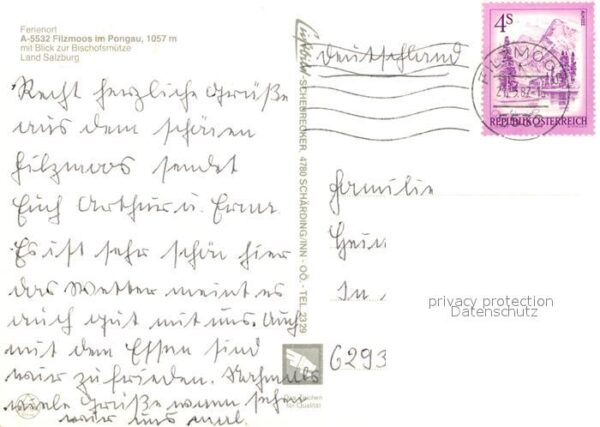 Ferienort
A-5532 Filzmoos im Pongau, 1057 m
mit Blick zur Bischofsmütze
Land Salzburg
Recht herzliche Grüße
aus dem schönen
Filzmoos sendet
Euch Arthur u. Erna.
Es ist sehr schön hier
das Wetter meint es
auch gut mit uns. Auch
mit dem Essen sind
wir zufrieden. Nochmals
viele Grüße wann sehen
wir uns mal.
SCHEBRECKER, 4780 SCHÄRDING/INN - OÖ. - TEL. 2329
Zeichen
für Qualität
Luftpost
Deutschland
4S
FILZMOOS
5532
REPUBLIK ÖSTERREICH
Familie
Hein
In
6293
privacy protection
Datenschutz